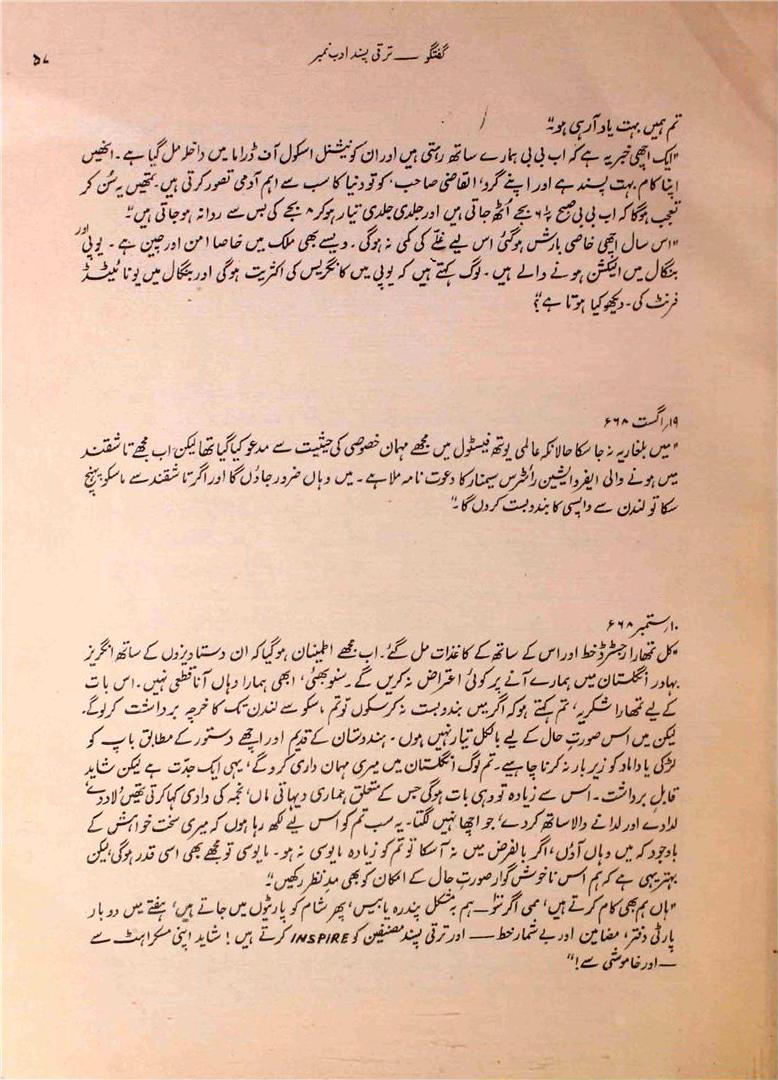 گفتگو — ترقی پسند ادب نمبر
۵۷
تم ہمیں بہت یاد آ رہی ہو۔"
"ایک اچھی خبر یہ ہے کہ اب بی بی ہمارے ساتھ رہتی ہیں اور ان کو نیشنل اسکول آف ڈراما میں داخلہ مل گیا ہے۔ انھیں
اپنا کام بہت پسند ہے اور اپنے گرو، القاضی صاحب، کو تو دنیا کا سب سے اہم آدمی تصور کرتی ہیں۔ تمھیں یہ سُن کر
تعجب ہوگا کہ اب بی بی صبح ۶ بجے اُٹھ جاتی ہیں اور جلدی جلدی تیار ہو کر ۸ بجے کی بس سے روانہ ہو جاتی ہیں۔"
"اس سال اچھی خاصی بارش ہوگئی اس لیے غلے کی کمی نہ ہوگی۔ ویسے بھی ملک میں خاصا امن اور چین ہے۔ یوپی اور
بنگال میں الیکشن ہونے والے ہیں۔ لوگ کہتے ہیں کہ یوپی میں کانگریس کی اکثریت ہوگی اور بنگال میں یونائیٹڈ
فرنٹ کی۔ دیکھو کیا ہوتا ہے؟"
۱۹ اگست ۶۶۸
"میں بلغاریہ نہ جا سکا حالانکہ عالمی یوتھ فیسٹول میں مجھے مہمان خصوصی کی حیثیت سے مدعو کیا گیا تھا لیکن اب مجھے تاشقند
میں ہونے والی ایفرو ایشین رائٹرس سیمنار کا دعوت نامہ ملا ہے۔ میں وہاں ضرور جاؤں گا اور اگر تاشقند سے ماسکو پہنچ
سکا تو لندن سے واپسی کا بندوبست کر دوں گا۔"
۱۰ ستمبر ۶۶۸
"کل تمھارا رجسٹرڈ خط اور اس کے ساتھ کے کاغذات مل گئے۔ اب مجھے اطمینان ہو گیا کہ ان دستاویزوں کے ساتھ انگریز
بہادر انگلستان میں ہمارے آنے پر کوئی اعتراض نہ کریں گے۔ سنو بھئی، ابھی ہمارا وہاں آنا قطعی نہیں۔ اس بات
کے لیے تمھارا شکریہ، تم کہتے ہو کہ اگر میں بندوبست نہ کر سکوں تو تم ماسکو سے لندن تک کا خرچہ برداشت کر لوگے۔
لیکن میں اس صورتِ حال کے لیے بالکل تیار نہیں ہوں۔ ہندوستان کے قدیم اور اچھے دستور کے مطابق باپ کو
لڑکی یا داماد کو زیر بار نہ کرنا چاہیے۔ تم لوگ انگلستان میں میری مہمان داری کروگے، یہی ایک جدّت ہے لیکن شاید
قابلِ برداشت۔ اس سے زیادہ تو وہی بات ہوگی جس کے متعلق ہماری دیہاتی ماں، نجمہ کی دادی کہا کرتی تھیں 'لاد دے'
لدا دے اور لدانے والا ساتھ کر دے، جو اچھا نہیں لگتا۔ یہ سب تم کو اس لیے لکھ رہا ہوں کہ میری سخت خواہش کے
باوجود کہ میں وہاں آؤں، اگر بالفرض میں نہ آ سکا تو تم کو زیادہ مایوسی نہ ہو۔ مایوسی تو مجھے بھی اسی قدر ہوگی، لیکن
بہتر یہی ہے کہ ہم اس ناخوش گوار صورتِ حال کے امکان کو بھی مدِ نظر رکھیں۔"
"ہاں ہم بھی کام کرتے ہیں، ممی اگر نتو — ہم بہ مشکل پندرہ یا بیس، پھر شام کو پارٹیوں میں جاتے ہیں، ہفتے میں دو بار
پارٹی دفتر، مضامین اور بے شمار خط — اور ترقی پسند مصنفین کو INSPIRE کرتے ہیں! شاید اپنی مسکراہٹ سے
— اور خاموشی سے!"